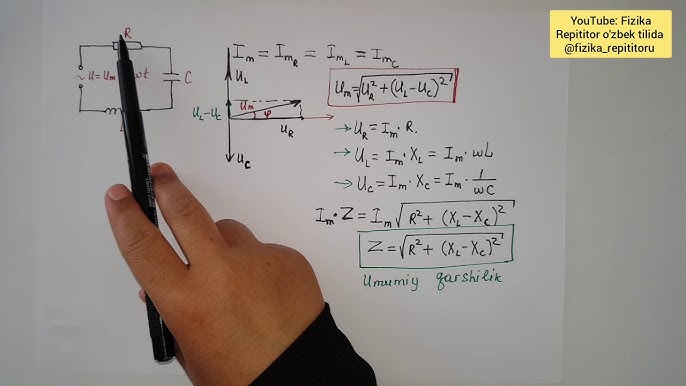 YouTube: Fizika
Repititor o'zbek tilida
@fizika_repititoru
R
~ U=Um ωt
C
Im = ImR = ImL = ImC
UL
UL-UC
Um
φ
UR
UC
Um=√UR²+(UL-UC)²
→ UR = Im·R.
→ UL = Im·XL = Im·ωL
→ UC = Im·XC = Im·1/ωC
Im·Z = Im√R²+(XL-XC)²
Z=√R²+(XL-XC)²
Umumiy qarshilik